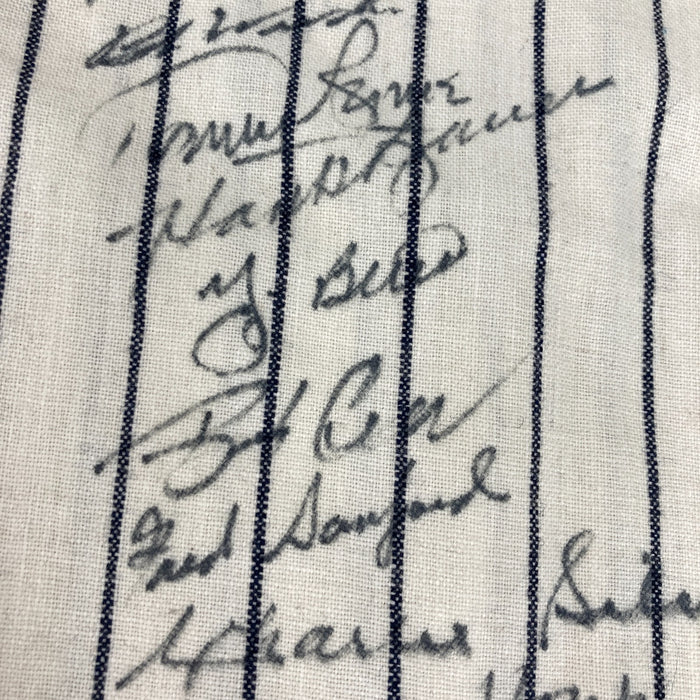 Tommy Byrne
Hank Bauer
Y. Berra
Bob Cerv
Fred Sanford
Charlie Sil